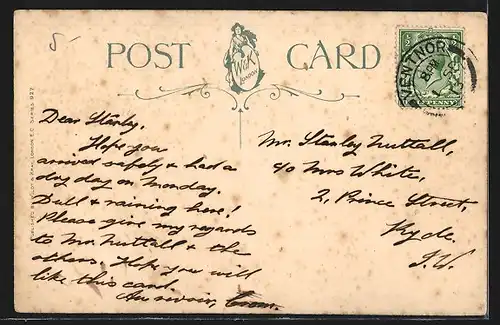 5-
POST CARD
W&K
LONDON
VENTNOR
PENNY
Dear Stanley,
Hope you
arrived safely & had a
dry day on Monday.
Dull & raining here!
Please give my regards
to Mr. Nuttall & the
others. Hope you will
like this card.
Au revoir,
Mr. Stanley Nuttall,
c/o Mrs White,
2, Prince Street,
Ryde.
I.W.